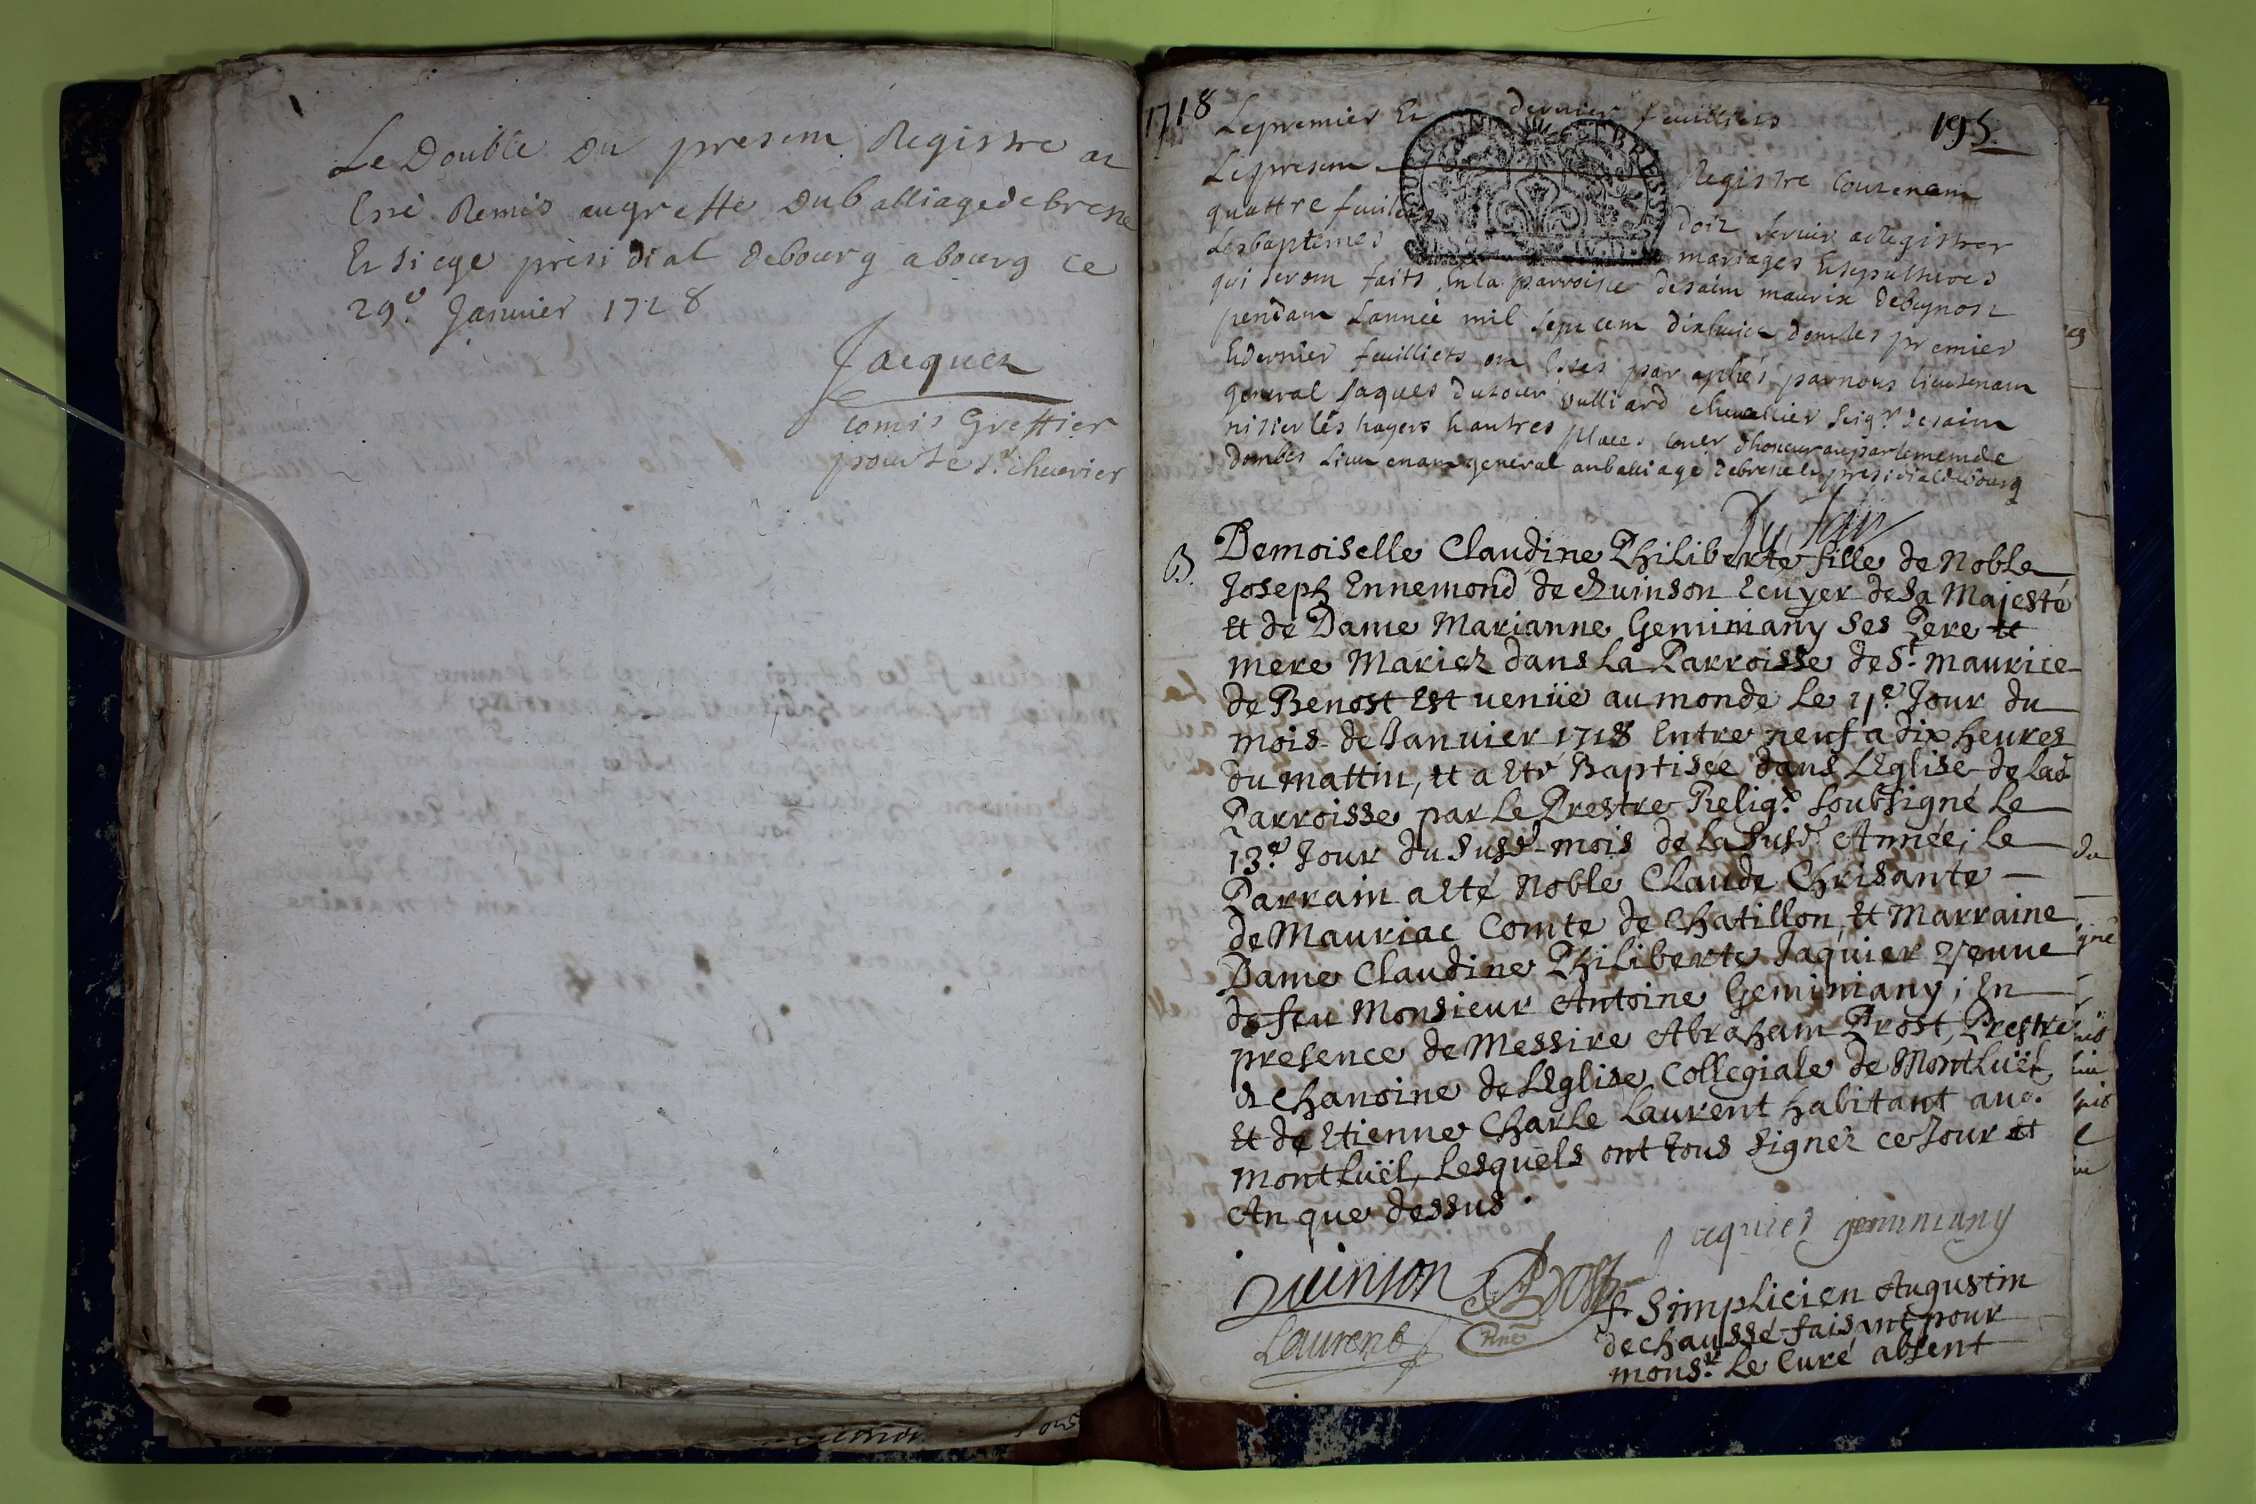 Le Double du present Registre a
Esté Remis au greffe du balliage de bresse
Et siege presidial de bourg a bourg ce
29e. Janvier 1728
Jacquet
Comis Greffier
pour le sr. chuvrier
1718
195.
Le premier Et dernier feuilliets
Le present Registre Contenant
quattre feuilets doit servir a Registrer
Les baptemes mariages Et sepultures
qui seront faits En la parroisse de saint maurix de beynost
pendant Lannée mil sept cent dixhuict dont les premier
Et dernier feuilliets ont Estes par aphés par nous lieutenant
general Jaques dutour vulliard chevallier Seigr. de saint
nisier les hayers Et autres places Coner dhoneur au parlement de
dombes Lieutenant general au balliage de bresse Et presidial de bourg
B.
Demoiselle Claudine Philiberte fille de Noble
Joseph Ennemond de Quinson Ecuyer de Sa Majesté
Et de Dame Marianne Geminiany Ses Pere Et
mere Mariez dans la Parroisse de St. maurice
de Benost Est venüe au monde Le 11e. Jour du
mois de Janvier 1718 Entre neuf a dix heures
du mattin, Et a Eté Baptisée dans L'Eglise de lad
Parroisse par Le Prestre Relig. soubsigné Le
13e. Jour du susd. mois de la susd. Année; Le
Parrain a Eté Noble Claude Chrisante
de Mauriac Comte de Chatillon, Et Marraine
Dame Claudine Philiberte Jaquier Veuve
de feu Monsieur Antoine Geminiany; En
presence de Messire Abraham Prost, Prestre
& Chanoine de L'Eglise Collegiale de Montluël
Et de Etienne Charle Laurent habitant aud.
Montluël, Lesquels ont tous signez ce Jour Et
An que dessus.
Jaquier geminiany
Quinson Prost
Laurent
f. Simplicien Augustin
dechaussé faisant pour
monsr. Le Curé absent